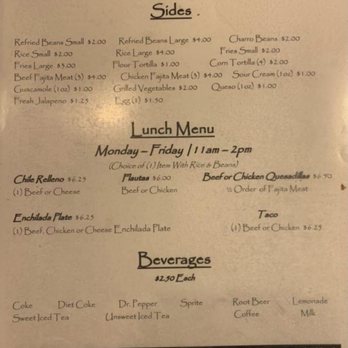 Sides
Refried Beans Small $2.00 Refried Beans Large $4.00 Charro Beans $2.00
Rice Small $2.00 Rice Large $4.00 Fries Small $2.00
Fries Large $3.00 Flour Tortilla $1.00 Corn Tortilla (4) $2.00
Beef Fajita Meat (3) $4.00 Chicken Fajita Meat (3) $4.00 Sour Cream (1oz) $1.00
Guacamole (1oz) $1.00 Grilled Vegetables $2.00 Queso (1oz) $1.00
Fresh Jalapeno $1.25 Egg (1) $1.50
Lunch Menu
Monday – Friday | 11am – 2pm
(Choice of (1) Item With Rice & Beans)
Chile Relleno $6.25 Flautas $6.00 Beef or Chicken Quesadillas $6.50
(1) Beef or Cheese Beef or Chicken ½ Order of Fajita Meat
Enchilada Plate $6.25 Taco
(1) Beef, Chicken or Cheese Enchilada Plate (1) Beef or Chicken $6.25
Beverages
$2.50 Each
Coke Diet Coke Dr. Pepper Sprite Root Beer Lemonade
Sweet Iced Tea Unsweet Iced Tea Coffee Milk